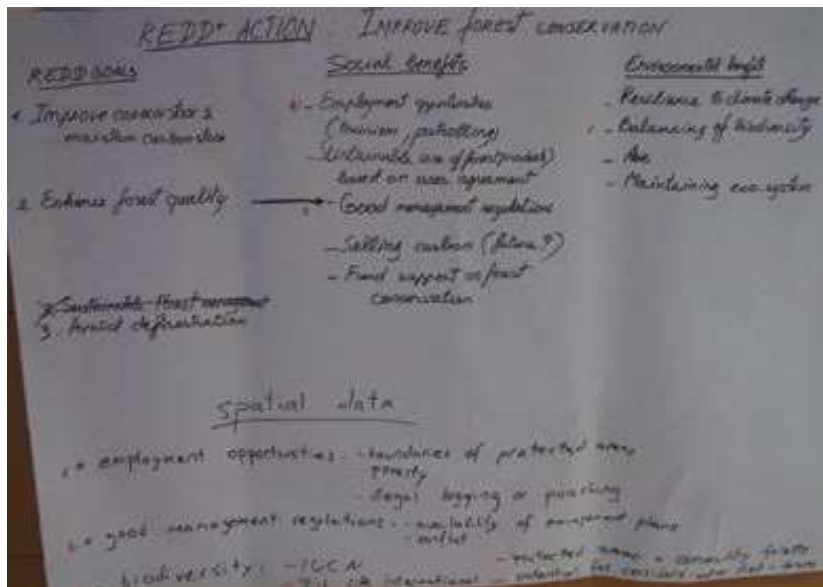 REDD+ ACTION IMPROVE forest CONSERVATION
REDD GOALS
1. Improve carbon stock &
maintain carbon stock
2. Enhance forest quality
Sustainable Forest management
3. Avoid deforestation
Social benefits
- Employment opportunities
(tourism, patrolling)
- Sustainable use of forest products
based on user agreement
- Good management regulations
- Selling carbon (future?)
- Fund support on forest
conservation
Environmental benefit
- Resilience to climate change
- Balancing of biodiversity
- Maintaining eco system
spatial data
employment opportunities: - boundaries of protected areas
- poverty
- illegal logging or poaching
good management regulations: - availability of management plans
- conflict
biodiversity: - IUCN
international
- protected areas + community forests
- potential for